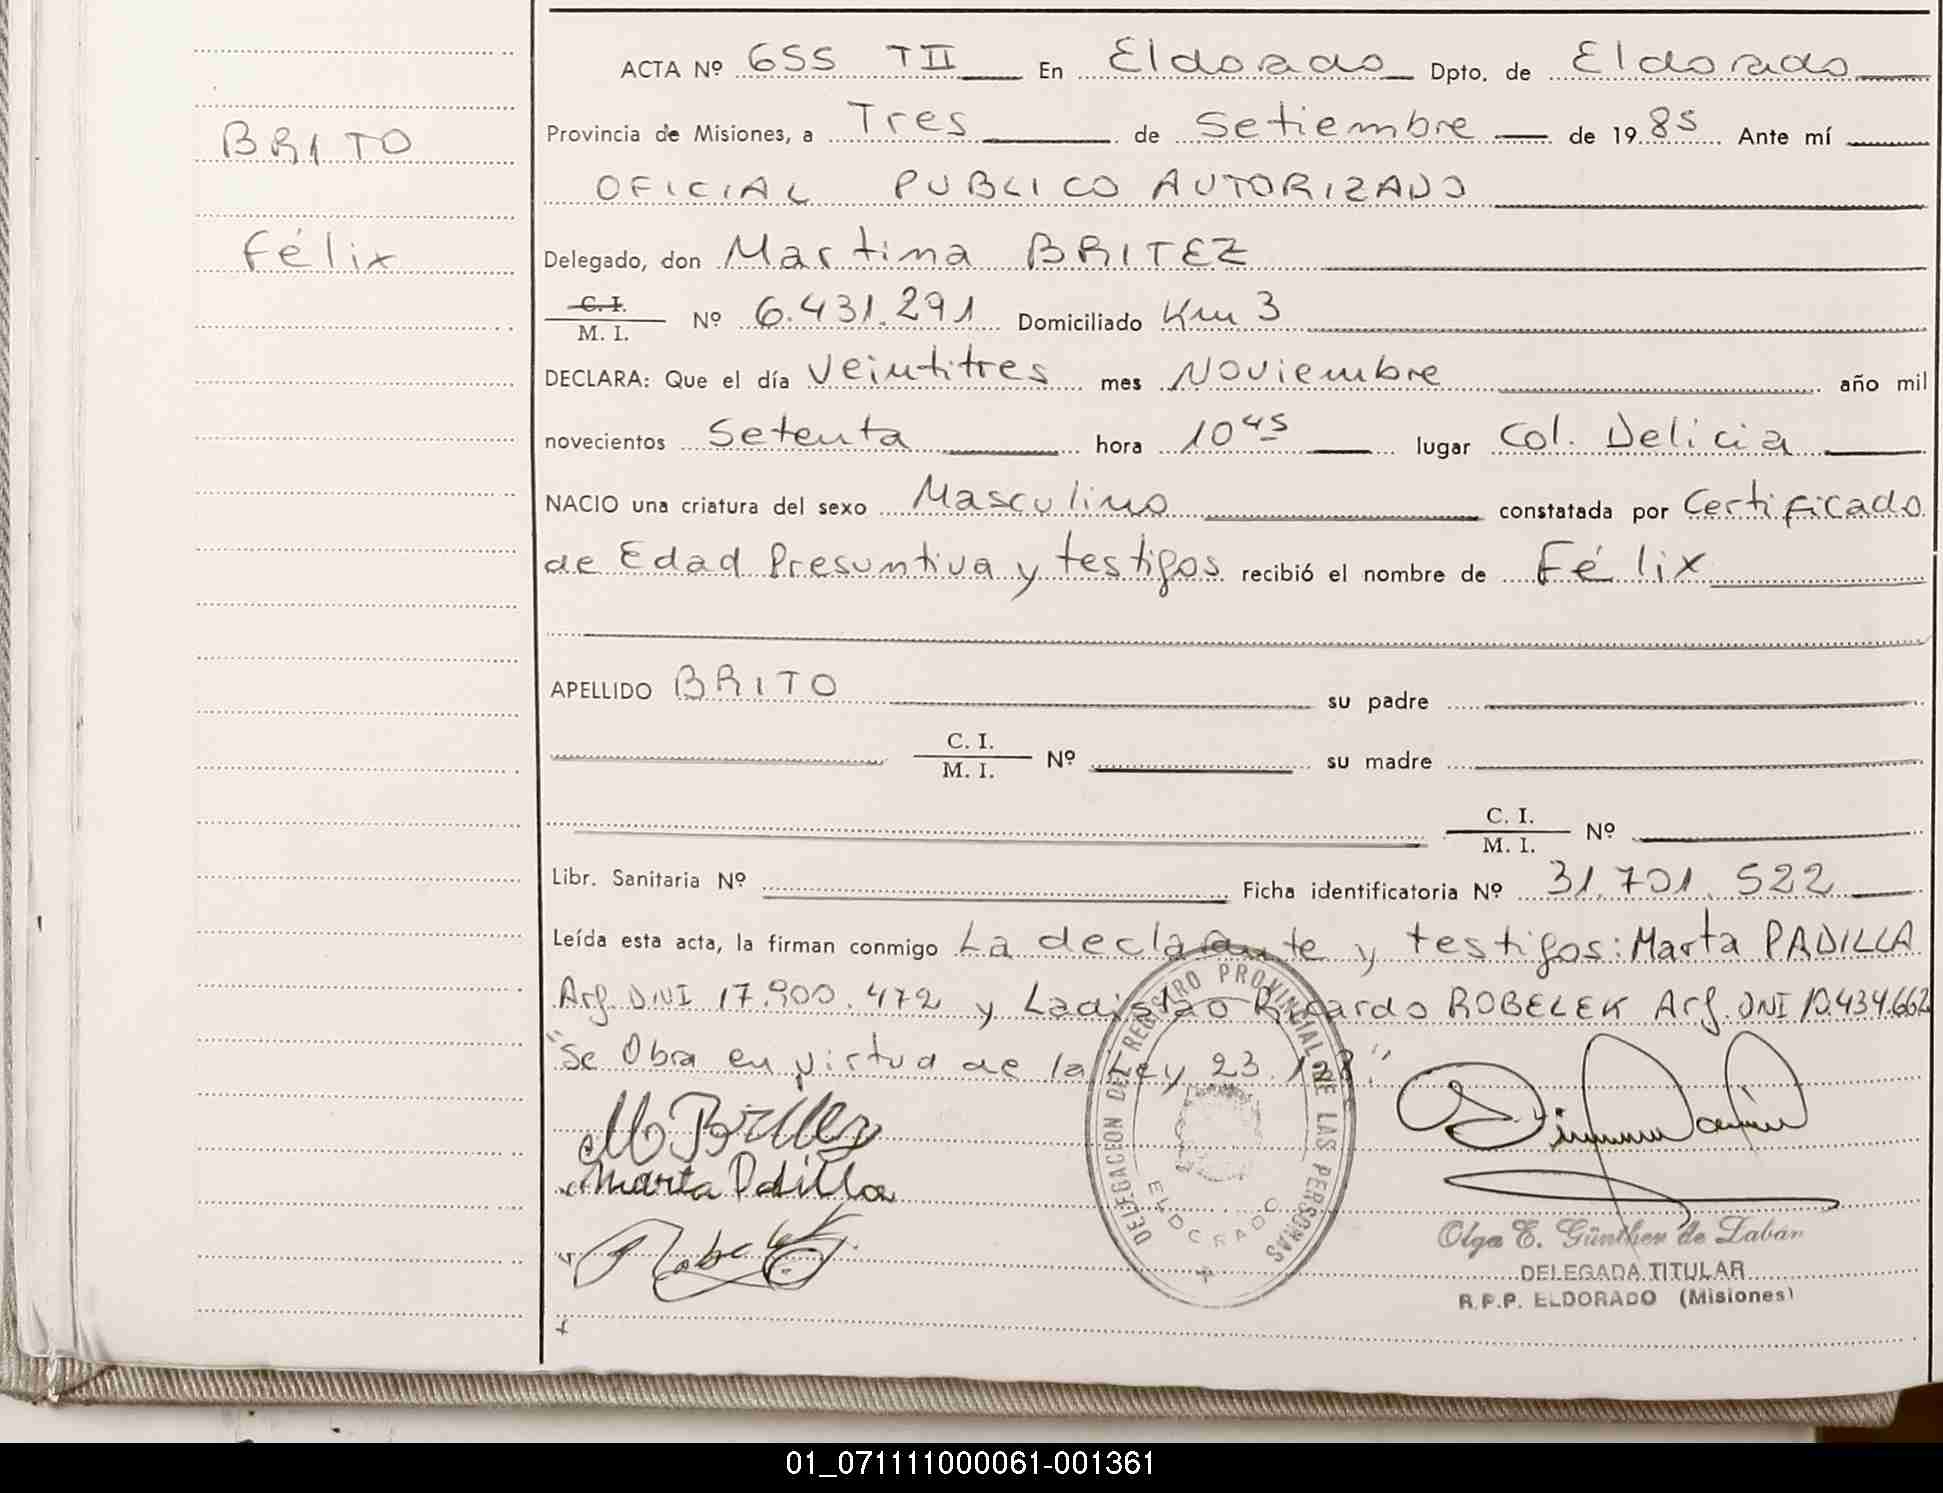 BRITO
Félix
ACTA Nº 655 TII En Eldorado Dpto. de Eldorado
Provincia de Misiones, a Tres de Setiembre de 1985 Ante mí
OFICIAL PUBLICO AUTORIZADO
Delegado, don Martina BRITEZ
C. I.
M. I. Nº 6.431.291 Domiciliado Km 3
DECLARA: Que el día Veintitres mes Noviembre año mil
novecientos Setenta hora 10 45 lugar Col. Delicia
NACIO una criatura del sexo Masculino constatada por Certificado
de Edad Presuntiva y testigos recibió el nombre de Félix
APELLIDO BRITO su padre
C. I.
M. I. Nº su madre
C. I.
M. I. Nº
Libr. Sanitaria Nº Ficha identificatoria Nº 31.701.522
Leída esta acta, la firman conmigo La declarante y testigos: Marta PADILLA
Arg. DNI 17.900.472 y Ladislao Ricardo ROBELEK Arg. DNI 10.434.662
"Se Obra en virtud de la Ley 23."
M Britez
Marta Padilla
Robelek
DELEGACION DEL REGISTRO PROVINCIAL DE LAS PERSONAS
ELDORADO
Olga E. Günther de Labán
DELEGADA TITULAR
R.P.P. ELDORADO (Misiones)
01_071111000061-001361